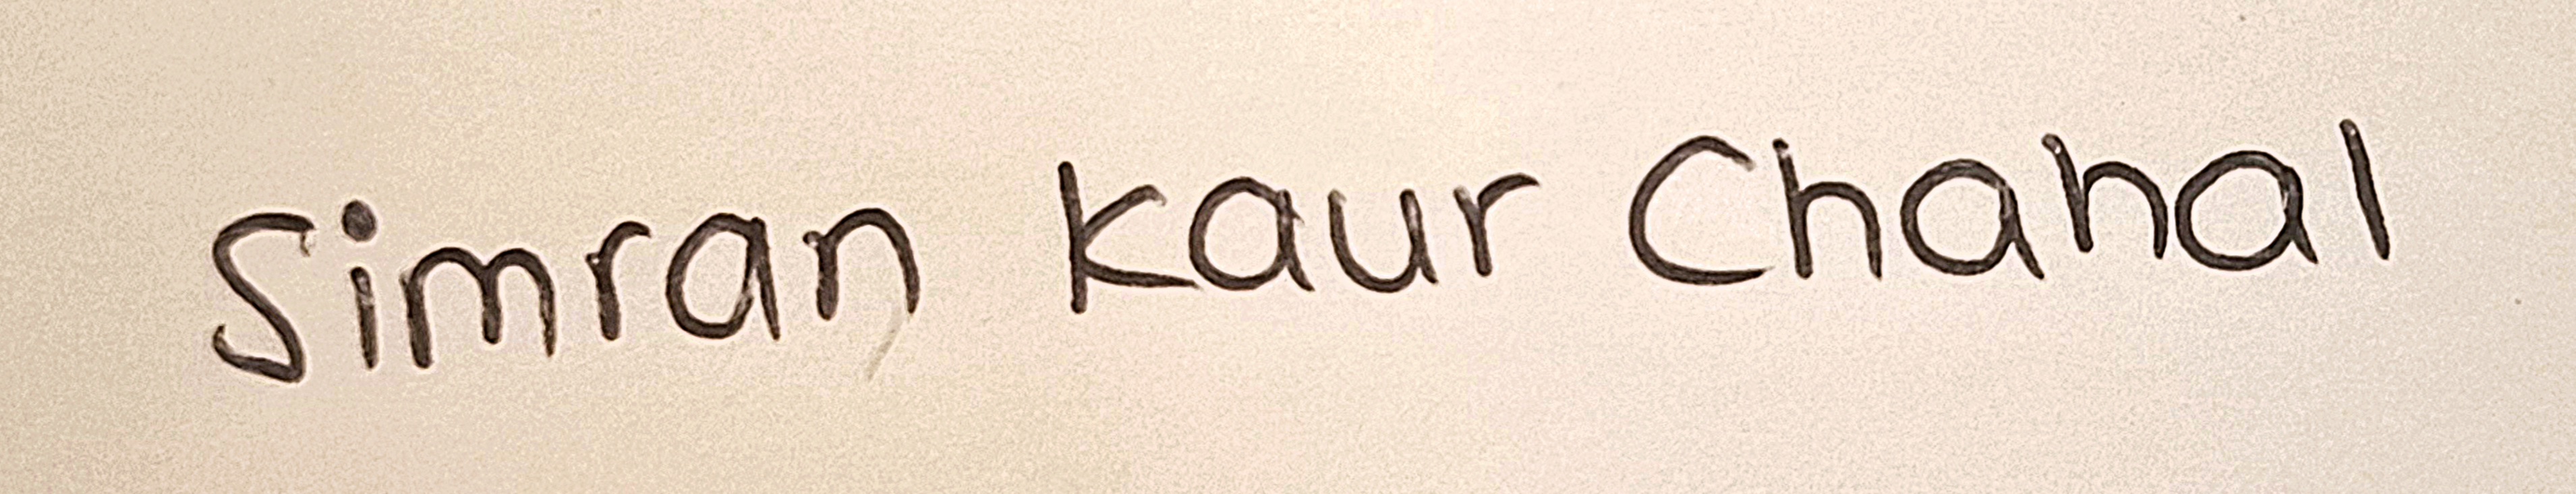 Simran Kaur Chahal